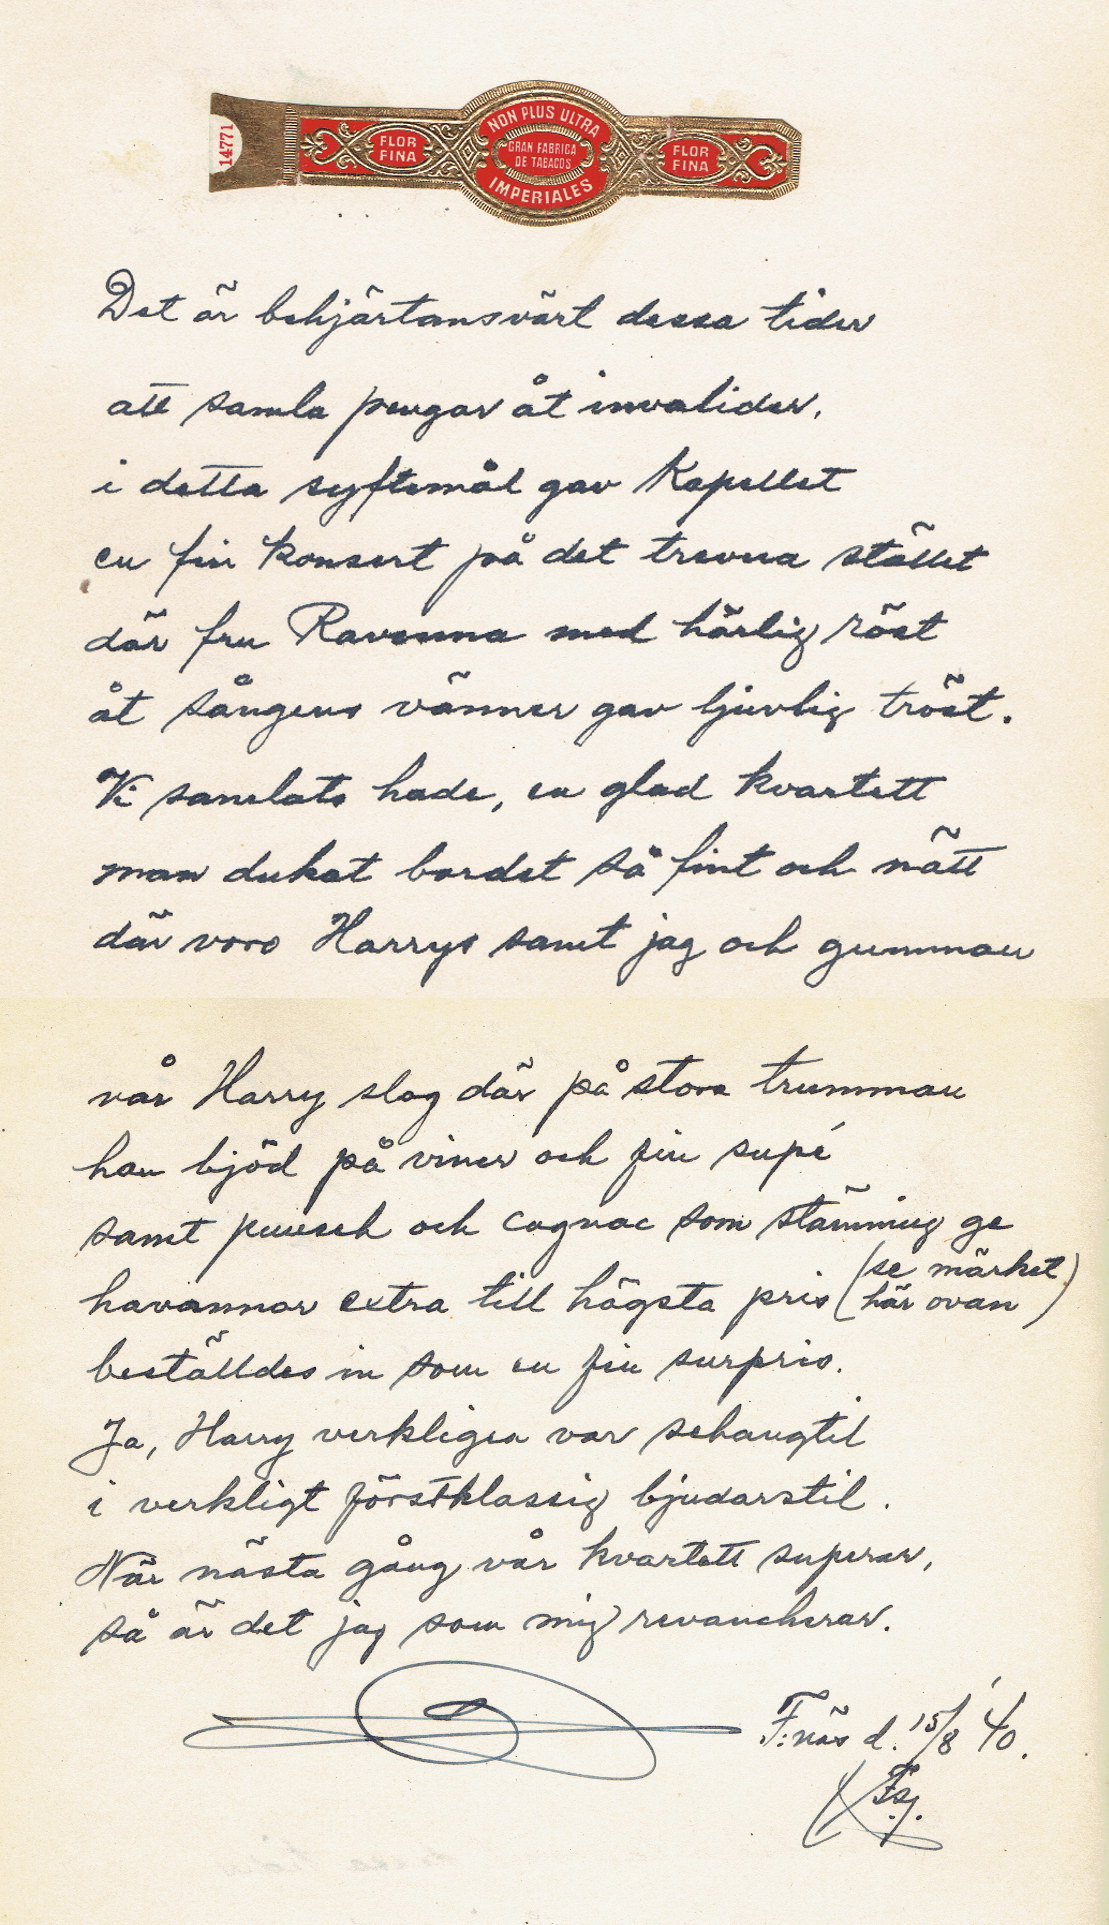 14771
FLOR
FINA
NON PLUS ULTRA
GRAN FABRICA
DE TABACOS
IMPERIALES
FLOR
FINA
Det är behjärtansvärt dessa tider
att samla pengar åt invalider.
i detta syftemål gav Kapellet
en fin konsert på det trevna stället
där fru Ravenna med härlig röst
åt sångens vänner gav ljuvlig tröst.
Vi samlats hade, en glad kvartett
man dukat bordet så fint och nätt
där voro Harrys samt jag och gumman
vår Harry slog där på stora trumman
han bjöd på viner och fin supé
samt punsch och cognac som stämning ge
havannor extra till högsta pris (se märket
här ovan)
beställdes in som en fin surpris.
Ja, Harry verkligen var schangtil
i verkligt förstklassig bjudarstil.
När nästa gång vår kvartett superar,
så är det jag som mig revancherar.
F:näs d. 15/8 40.